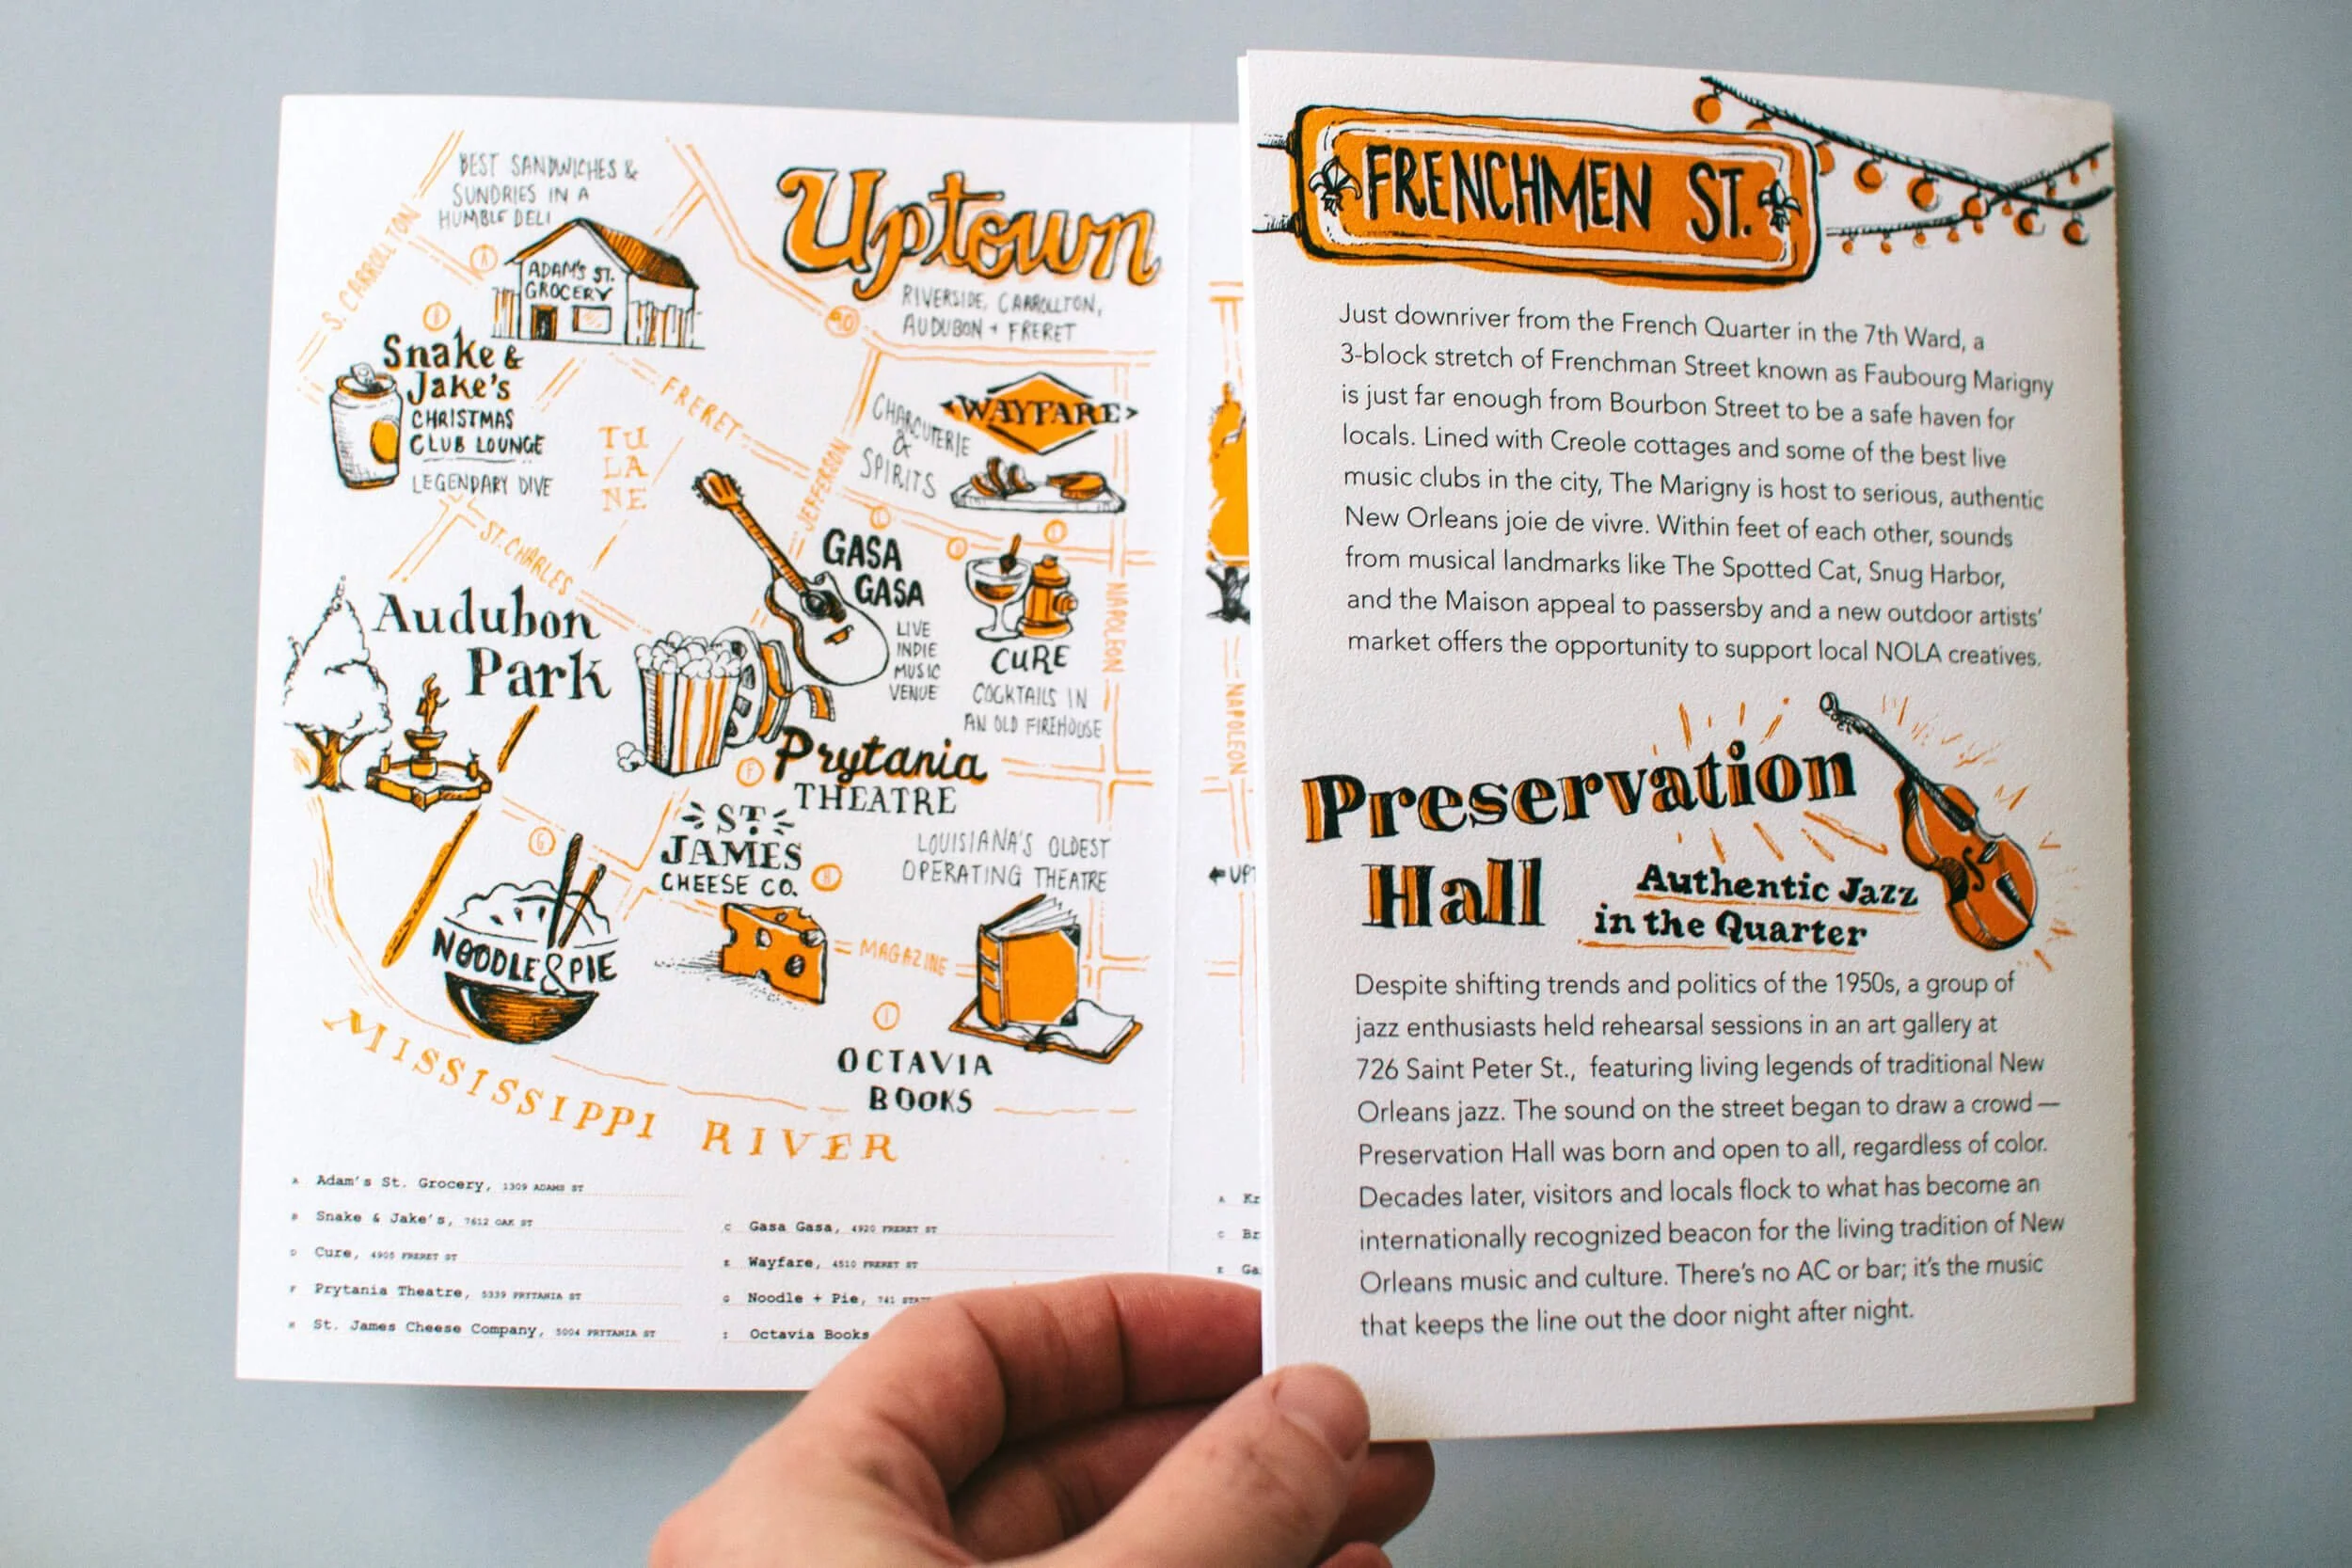 BEST SANDWICHES &
SUNDRIES IN A
HUMBLE DELI
S. CARROLLTON
A
ADAM'S ST.
GROCERY
Uptown
RIVERSIDE, CARROLLTON,
AUDUBON + FRERET
B
Snake &
Jake's
CHRISTMAS
CLUB LOUNGE
LEGENDARY DIVE
TU
LA
NE
FRERET
JEFFERSON
CHARCUTERIE
&
SPIRITS
WAYFARE
ST. CHARLES
GASA
GASA
LIVE
INDIE
MUSIC
VENUE
C
D
E
CURE
COCKTAILS IN
AN OLD FIREHOUSE
NAPOLEON
Audubon
Park
F
Prytania
THEATRE
LOUISIANA'S OLDEST
OPERATING THEATRE
ST.
JAMES
CHEESE CO.
H
G
NOODLE & PIE
MAGAZINE
I
OCTAVIA
BOOKS
MISSISSIPPI RIVER
A Adam's St. Grocery, 1309 ADAMS ST
B Snake & Jake's, 7612 OAK ST
D Cure, 4905 FRERET ST
F Prytania Theatre, 5339 PRYTANIA ST
H St. James Cheese Company, 5004 PRYTANIA ST
C Gasa Gasa, 4920 FRERET ST
E Wayfare, 4510 FRERET ST
G Noodle + Pie, 741
I Octavia Books
NAPOLEON
A Kr
C Br
E Ga
FRENCHMEN ST.
Just downriver from the French Quarter in the 7th Ward, a
3-block stretch of Frenchman Street known as Faubourg Marigny
is just far enough from Bourbon Street to be a safe haven for
locals. Lined with Creole cottages and some of the best live
music clubs in the city, The Marigny is host to serious, authentic
New Orleans joie de vivre. Within feet of each other, sounds
from musical landmarks like The Spotted Cat, Snug Harbor,
and the Maison appeal to passersby and a new outdoor artists'
market offers the opportunity to support local NOLA creatives.
Preservation
Hall
Authentic Jazz
in the Quarter
Despite shifting trends and politics of the 1950s, a group of
jazz enthusiasts held rehearsal sessions in an art gallery at
726 Saint Peter St., featuring living legends of traditional New
Orleans jazz. The sound on the street began to draw a crowd —
Preservation Hall was born and open to all, regardless of color.
Decades later, visitors and locals flock to what has become an
internationally recognized beacon for the living tradition of New
Orleans music and culture. There's no AC or bar; it's the music
that keeps the line out the door night after night.